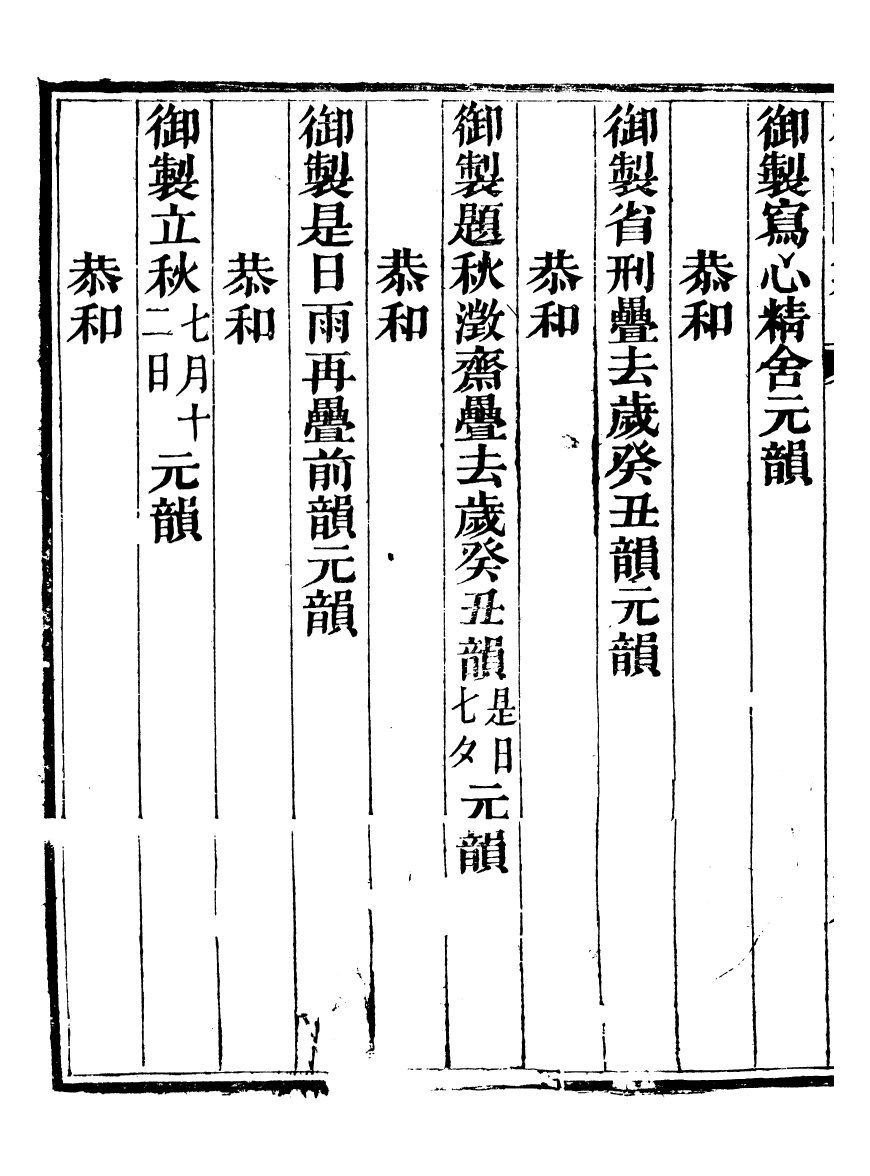 御製寫心精舍元韻
恭和
御製省刑疊去歲癸丑韻元韻
恭和
御製題秋澂齋疊去歲癸丑韻是日七夕元韻
恭和
御製是日雨再疊前韻元韻
恭和
御製立秋七月十二日元韻
恭和